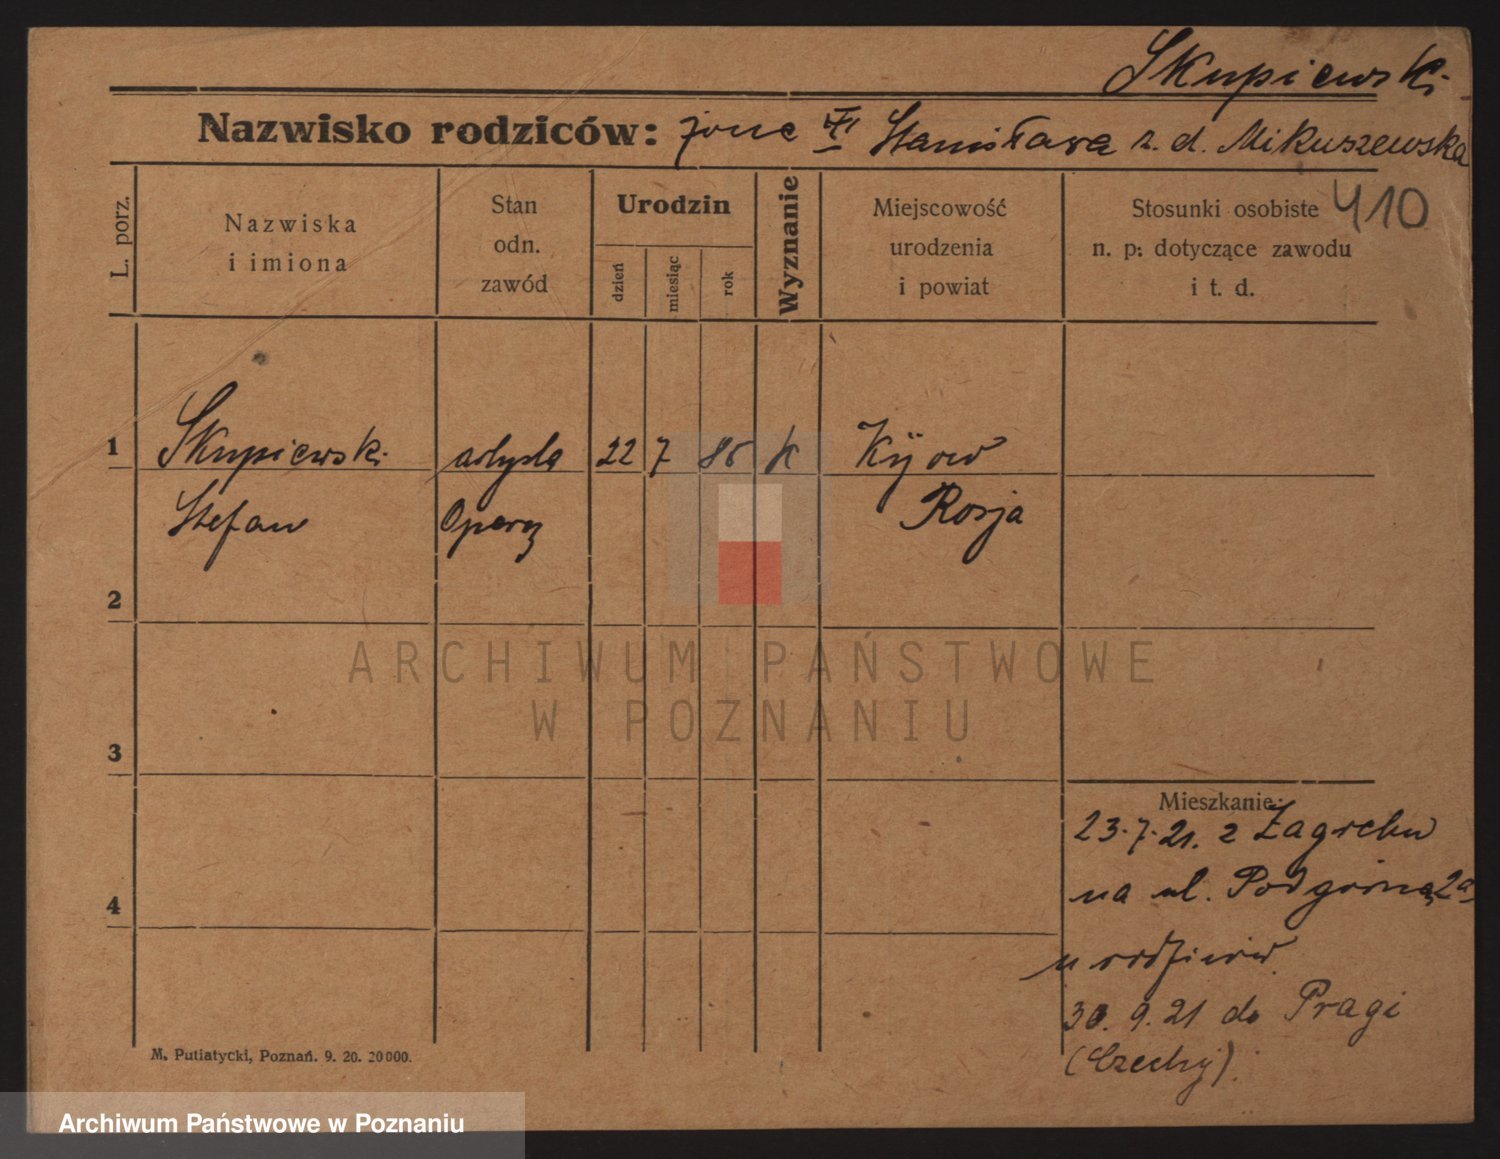 Skupiewski
Nazwisko rodziców: żona Stanisława z. d. Mikuszewska
410
L. porz.
Nazwiska
i imiona
Stan
odn.
zawód
Urodzin
dzień
miesiąc
rok
Wyznanie
Miejscowość
urodzenia
i powiat
Stosunki osobiste
n. p: dotyczące zawodu
i t. d.
1
Skupiewski artysta 22 7 86 k Kijow
Stefan Opery Rosja
2
3
4
Mieszkanie:
23.7.21. z Zagrebu
na ul. Podgórną 2a
u rodziców
30. 9. 21 do Pragi
(Czechy).
M. Putiatycki, Poznań. 9. 20. 20000.
ARCHIWUM PAŃSTWOWE
W POZNANIU
Archiwum Państwowe w Poznaniu